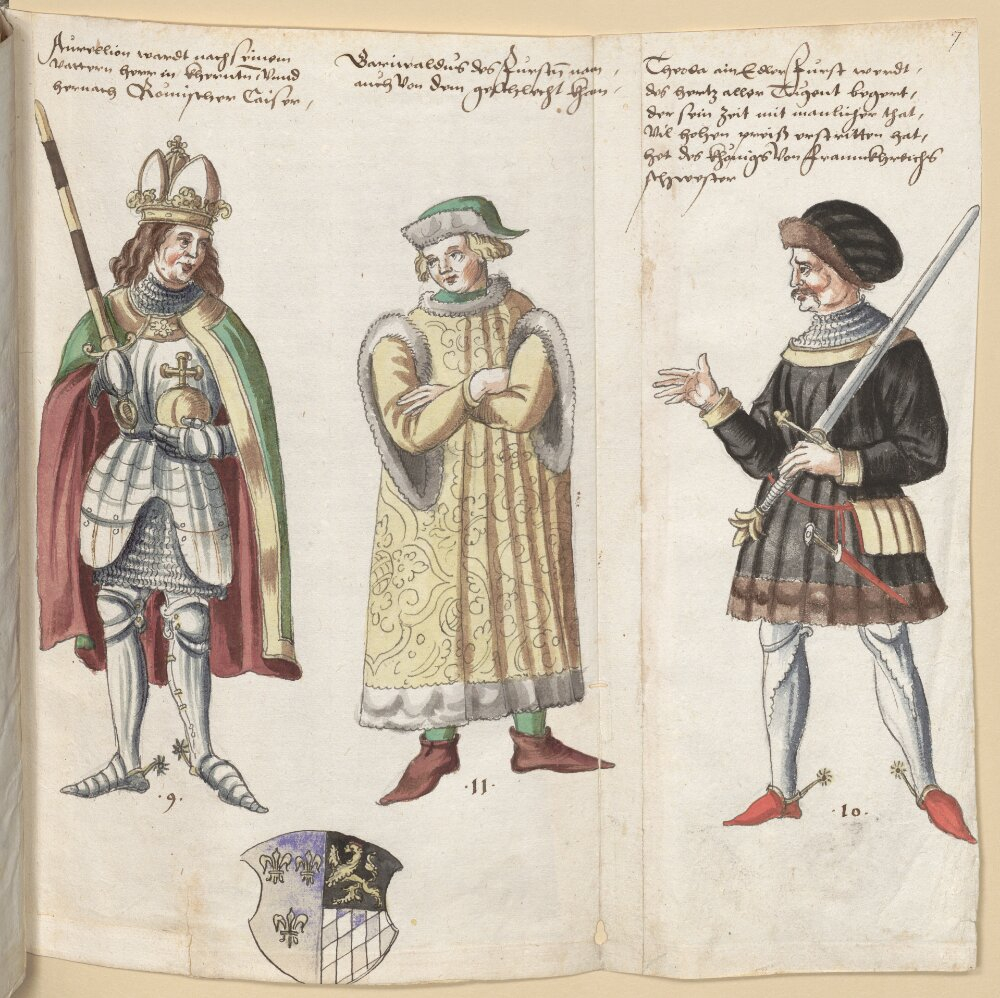 7
Aurellion wardt nach seinem
Vattern herr in kherntn, Vnnd
hernach Römischer Caiser,
Gariwaldus des Fursten nam,
auch Von dem geschlecht kam,
Theoda ain Edler Furst werdt,
des hertz aller Tugent begert,
der sein Zeit mit manlicher that,
Vil hohen preiß erstritten hat,
het des Königs Von Frannkhreichs
schwester
.9.
.11.
.10.